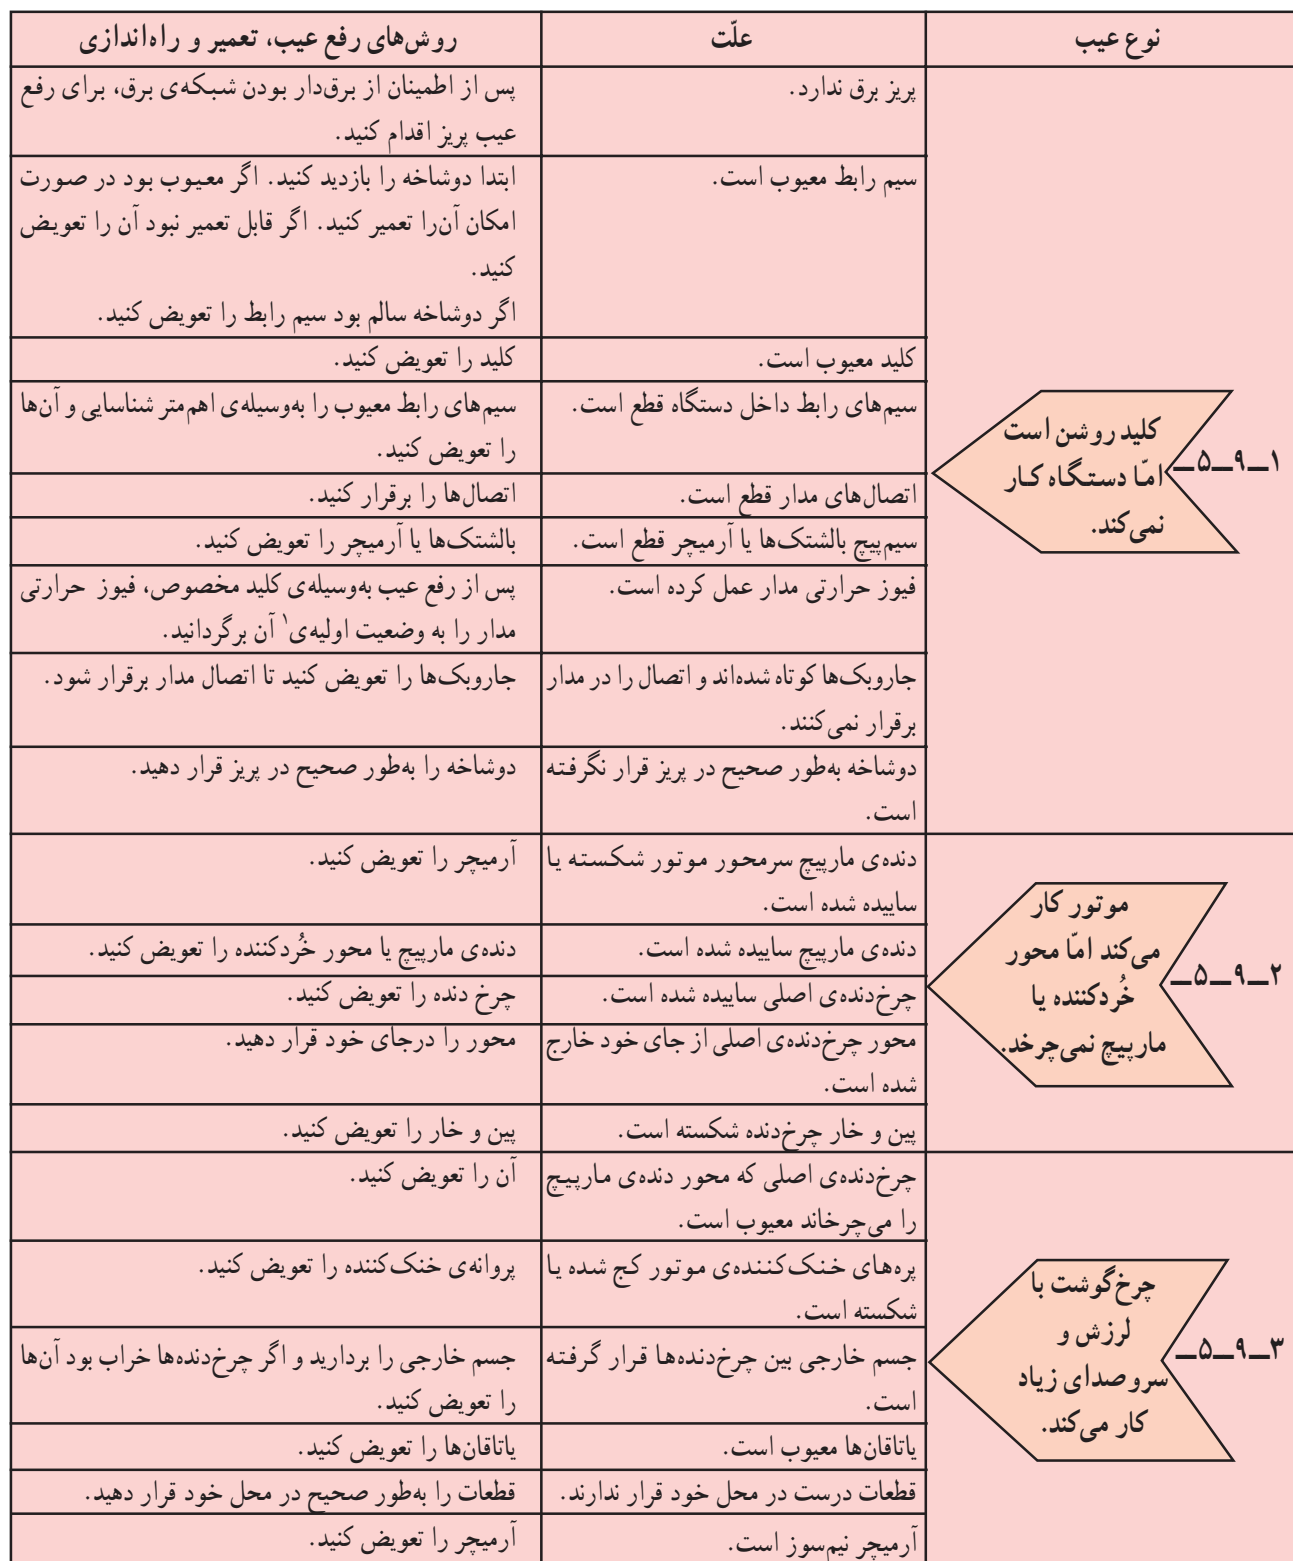 نوع عیب	علّت	روش‌های رفع عیب، تعمیر و راه‌اندازی
۱ــ۹ــ۵ــ
کلید روشن است
امّا دستگاه کار
نمی‌کند.
پریز برق ندارد.
پس از اطمینان از برق‌دار بودن شبکه‌ی برق، برای رفع
عیب پریز اقدام کنید.
سیم رابط معیوب است.
ابتدا دوشاخه را بازدید کنید. اگر معیوب بود در صورت
امکان آن‌را تعمیر کنید. اگر قابل تعمیر نبود آن را تعویض
کنید.
اگر دوشاخه سالم بود سیم رابط را تعویض کنید.
کلید معیوب است.
کلید را تعویض کنید.
سیم‌های رابط داخل دستگاه قطع است.
سیم‌های رابط معیوب را به‌وسیله‌ی اهم‌متر شناسایی و آن‌ها
را تعویض کنید.
اتصال‌های مدار قطع است.
اتصال‌ها را برقرار کنید.
سیم‌پیچ بالشتک‌ها یا آرمیچر قطع است.
بالشتک‌ها یا آرمیچر را تعویض کنید.
فیوز حرارتی مدار عمل کرده است.
پس از رفع عیب به‌وسیله‌ی کلید مخصوص، فیوز حرارتی
مدار را به وضعیت اولیه‌ی۱ آن برگردانید.
جاروبک‌ها کوتاه شده‌اند و اتصال را در مدار
برقرار نمی‌کنند.
جاروبک‌ها را تعویض کنید تا اتصال مدار برقرار شود.
دوشاخه به‌طور صحیح در پریز قرار نگرفته
است.
دوشاخه را به‌طور صحیح در پریز قرار دهید.
۲ــ۹ــ۵ــ
موتور کار
می‌کند امّا محور
خُردکننده یا
مارپیچ نمی‌چرخد.
دنده‌ی مارپیچ سرمحور موتور شکسته یا
ساییده شده است.
آرمیچر را تعویض کنید.
دنده‌ی مارپیچ ساییده شده است.
دنده‌ی مارپیچ یا محور خُردکننده را تعویض کنید.
چرخ‌دنده‌ی اصلی ساییده شده است.
چرخ دنده را تعویض کنید.
محور چرخ‌دنده‌ی اصلی از جای خود خارج
شده است.
محور را درجای خود قرار دهید.
پین و خار چرخ‌دنده شکسته است.
پین و خار را تعویض کنید.
۳ــ۹ــ۵ــ
چرخ‌گوشت با
لرزش و
سروصدای زیاد
کار می‌کند.
چرخ‌دنده‌ی اصلی که محور دنده‌ی مارپیچ
را می‌چرخاند معیوب است.
آن را تعویض کنید.
پره‌های خنک‌کننده‌ی موتور کج شده یا
شکسته است.
پروانه‌ی خنک‌کننده را تعویض کنید.
جسم خارجی بین چرخ‌دنده‌ها قرار گرفته
است.
جسم خارجی را بردارید و اگر چرخ‌دنده‌ها خراب بود آن‌ها
را تعویض کنید.
یاتاقان‌ها معیوب است.
یاتاقان‌ها را تعویض کنید.
قطعات درست در محل خود قرار ندارند.
قطعات را به‌طور صحیح در محل خود قرار دهید.
آرمیچر نیم‌سوز است.
آرمیچر را تعویض کنید.